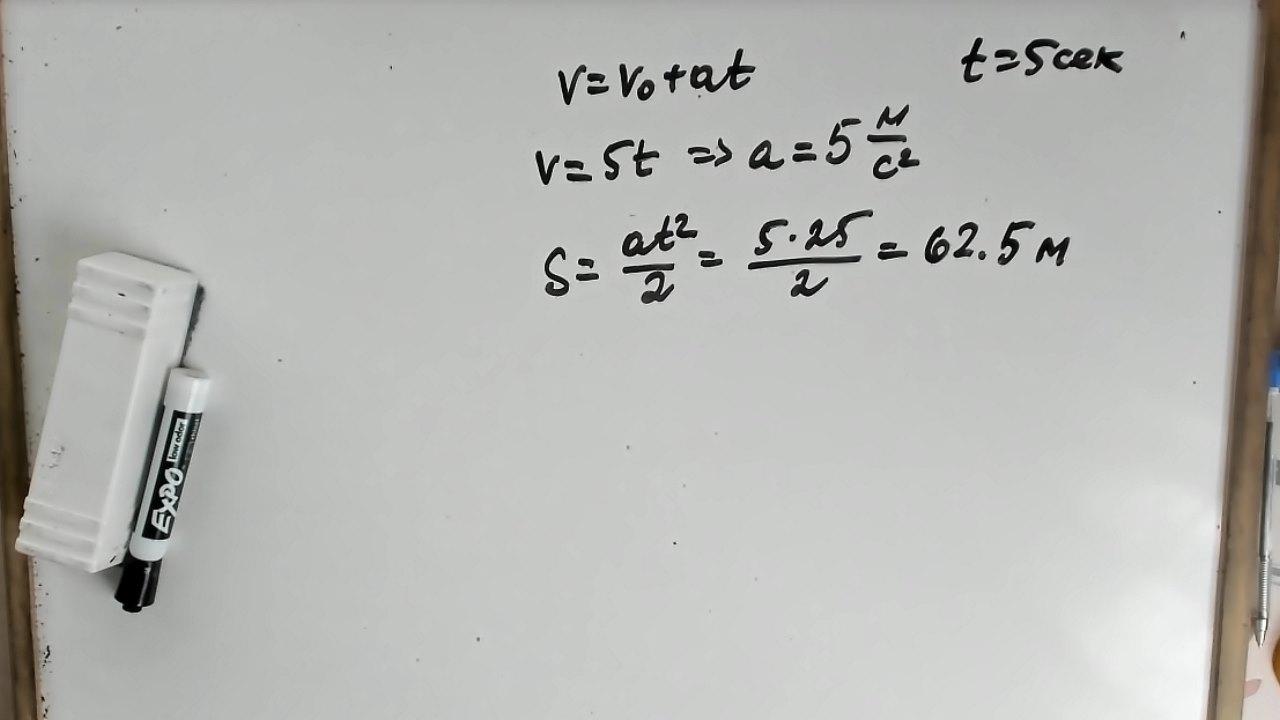 v = v₀ + at
t = 5 сек
v = 5t => a = 5 м/с²
S = at²/2 = 5·25/2 = 62.5 м
EXPO low odor